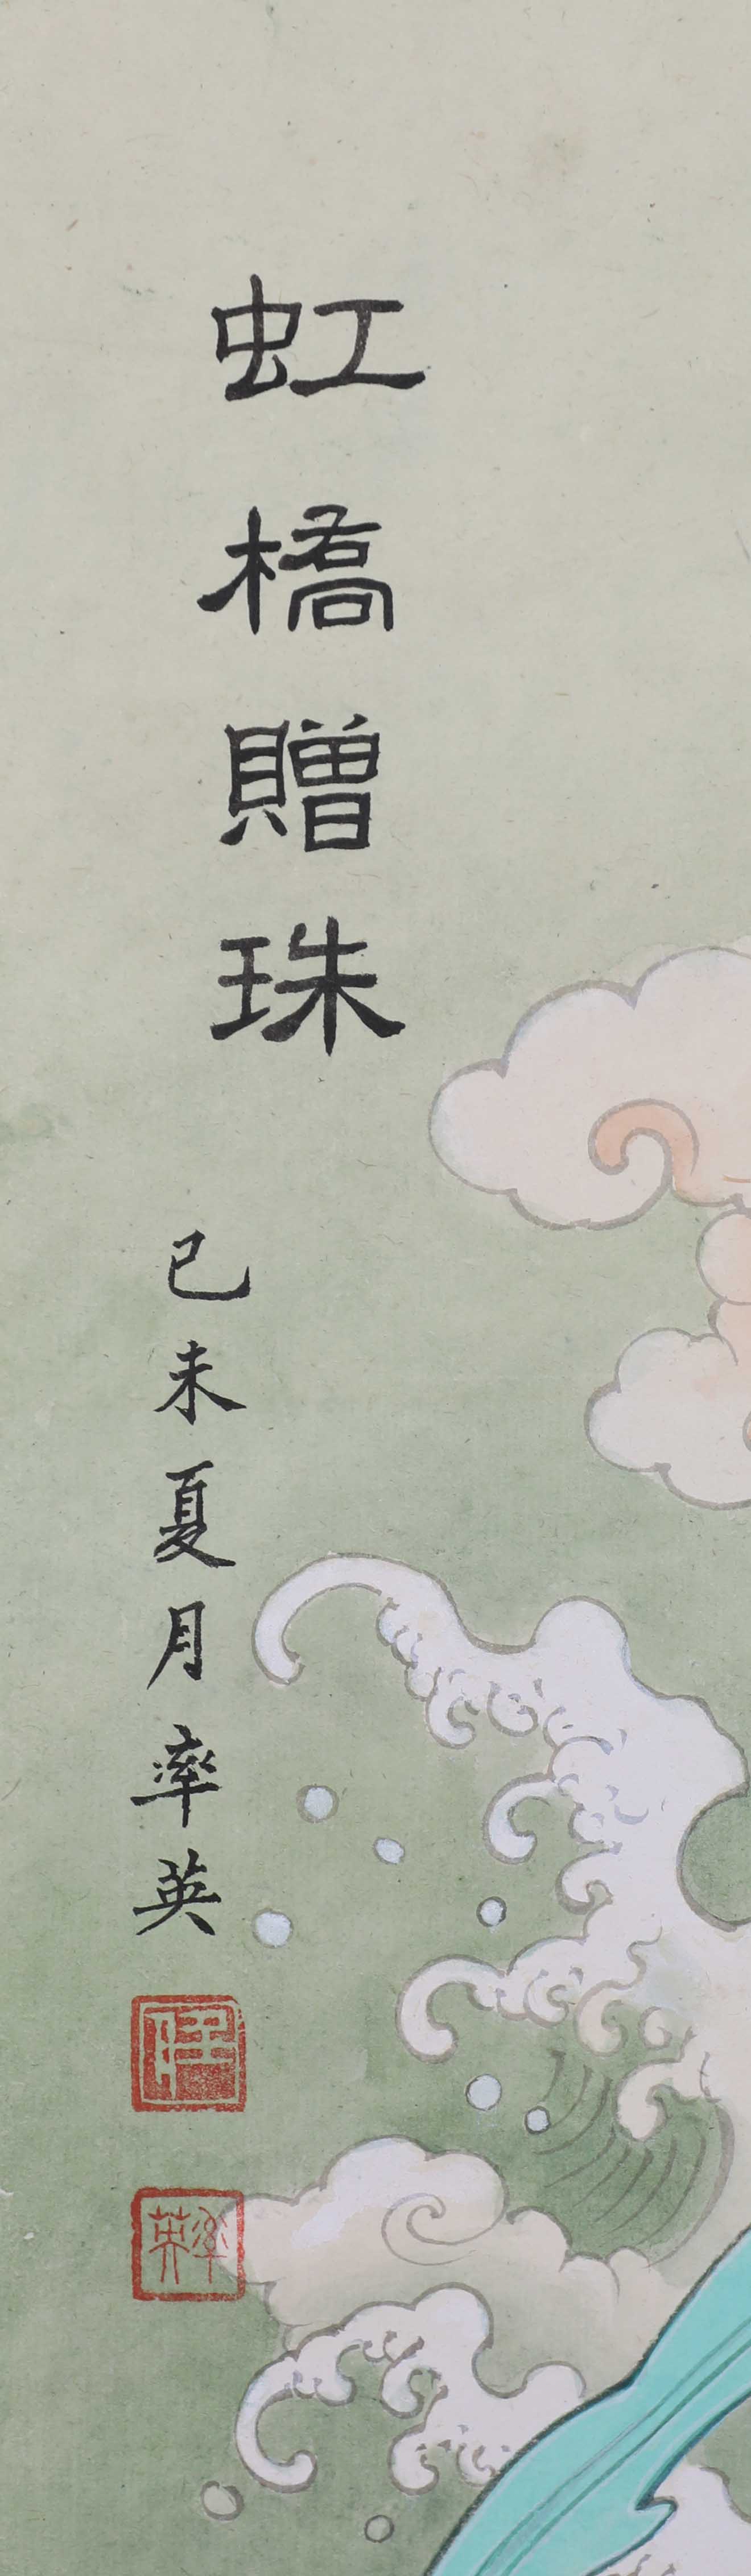 虹橋贈珠
己未夏月率英
率英